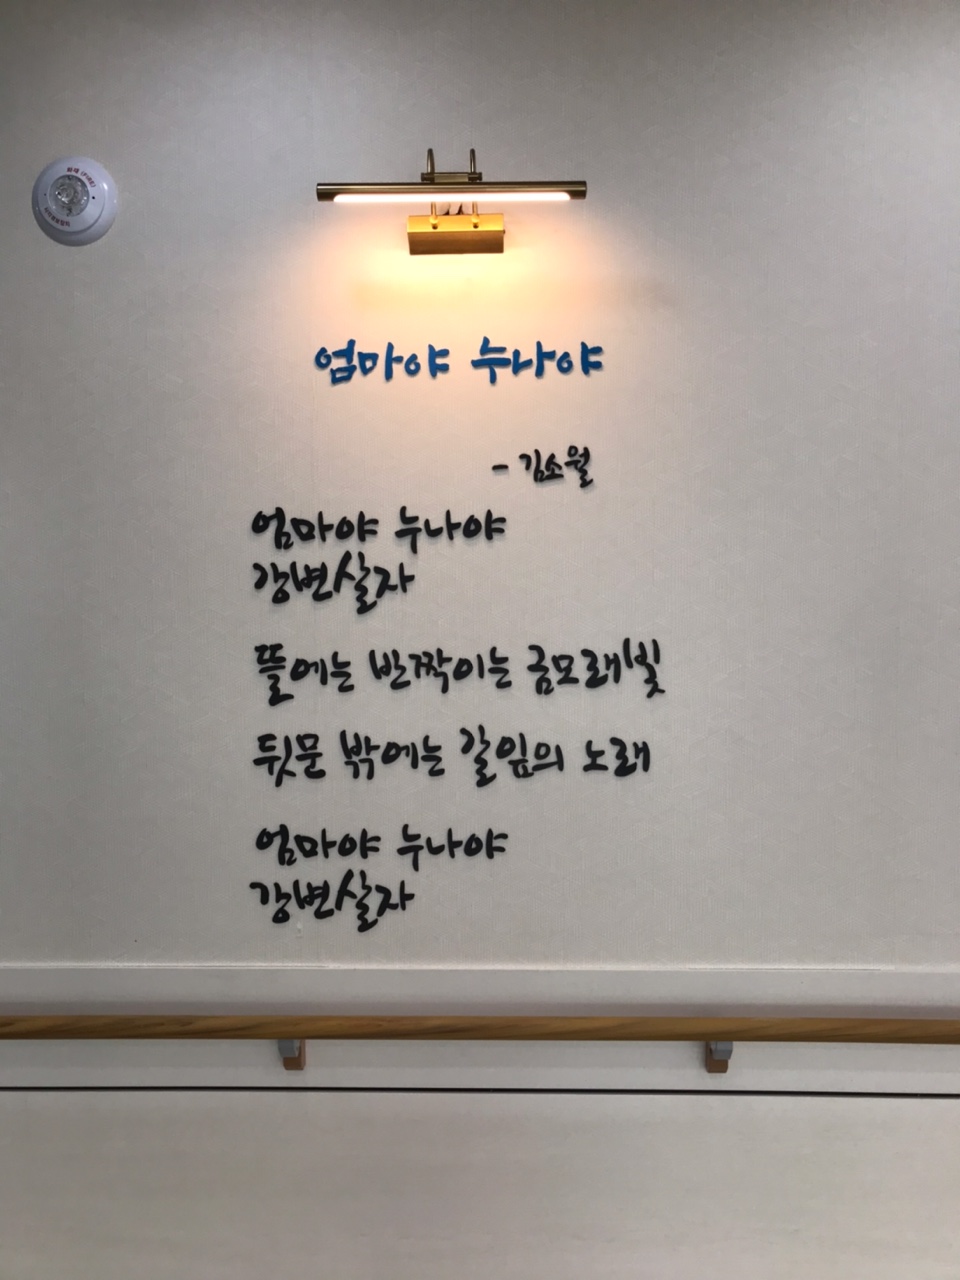 화재 (FIRE)
엄마야 누나야
- 김소월
엄마야 누나야
강변살자
뜰에는 반짝이는 금모래빛
뒷문 밖에는 갈잎의 노래
엄마야 누나야
강변살자